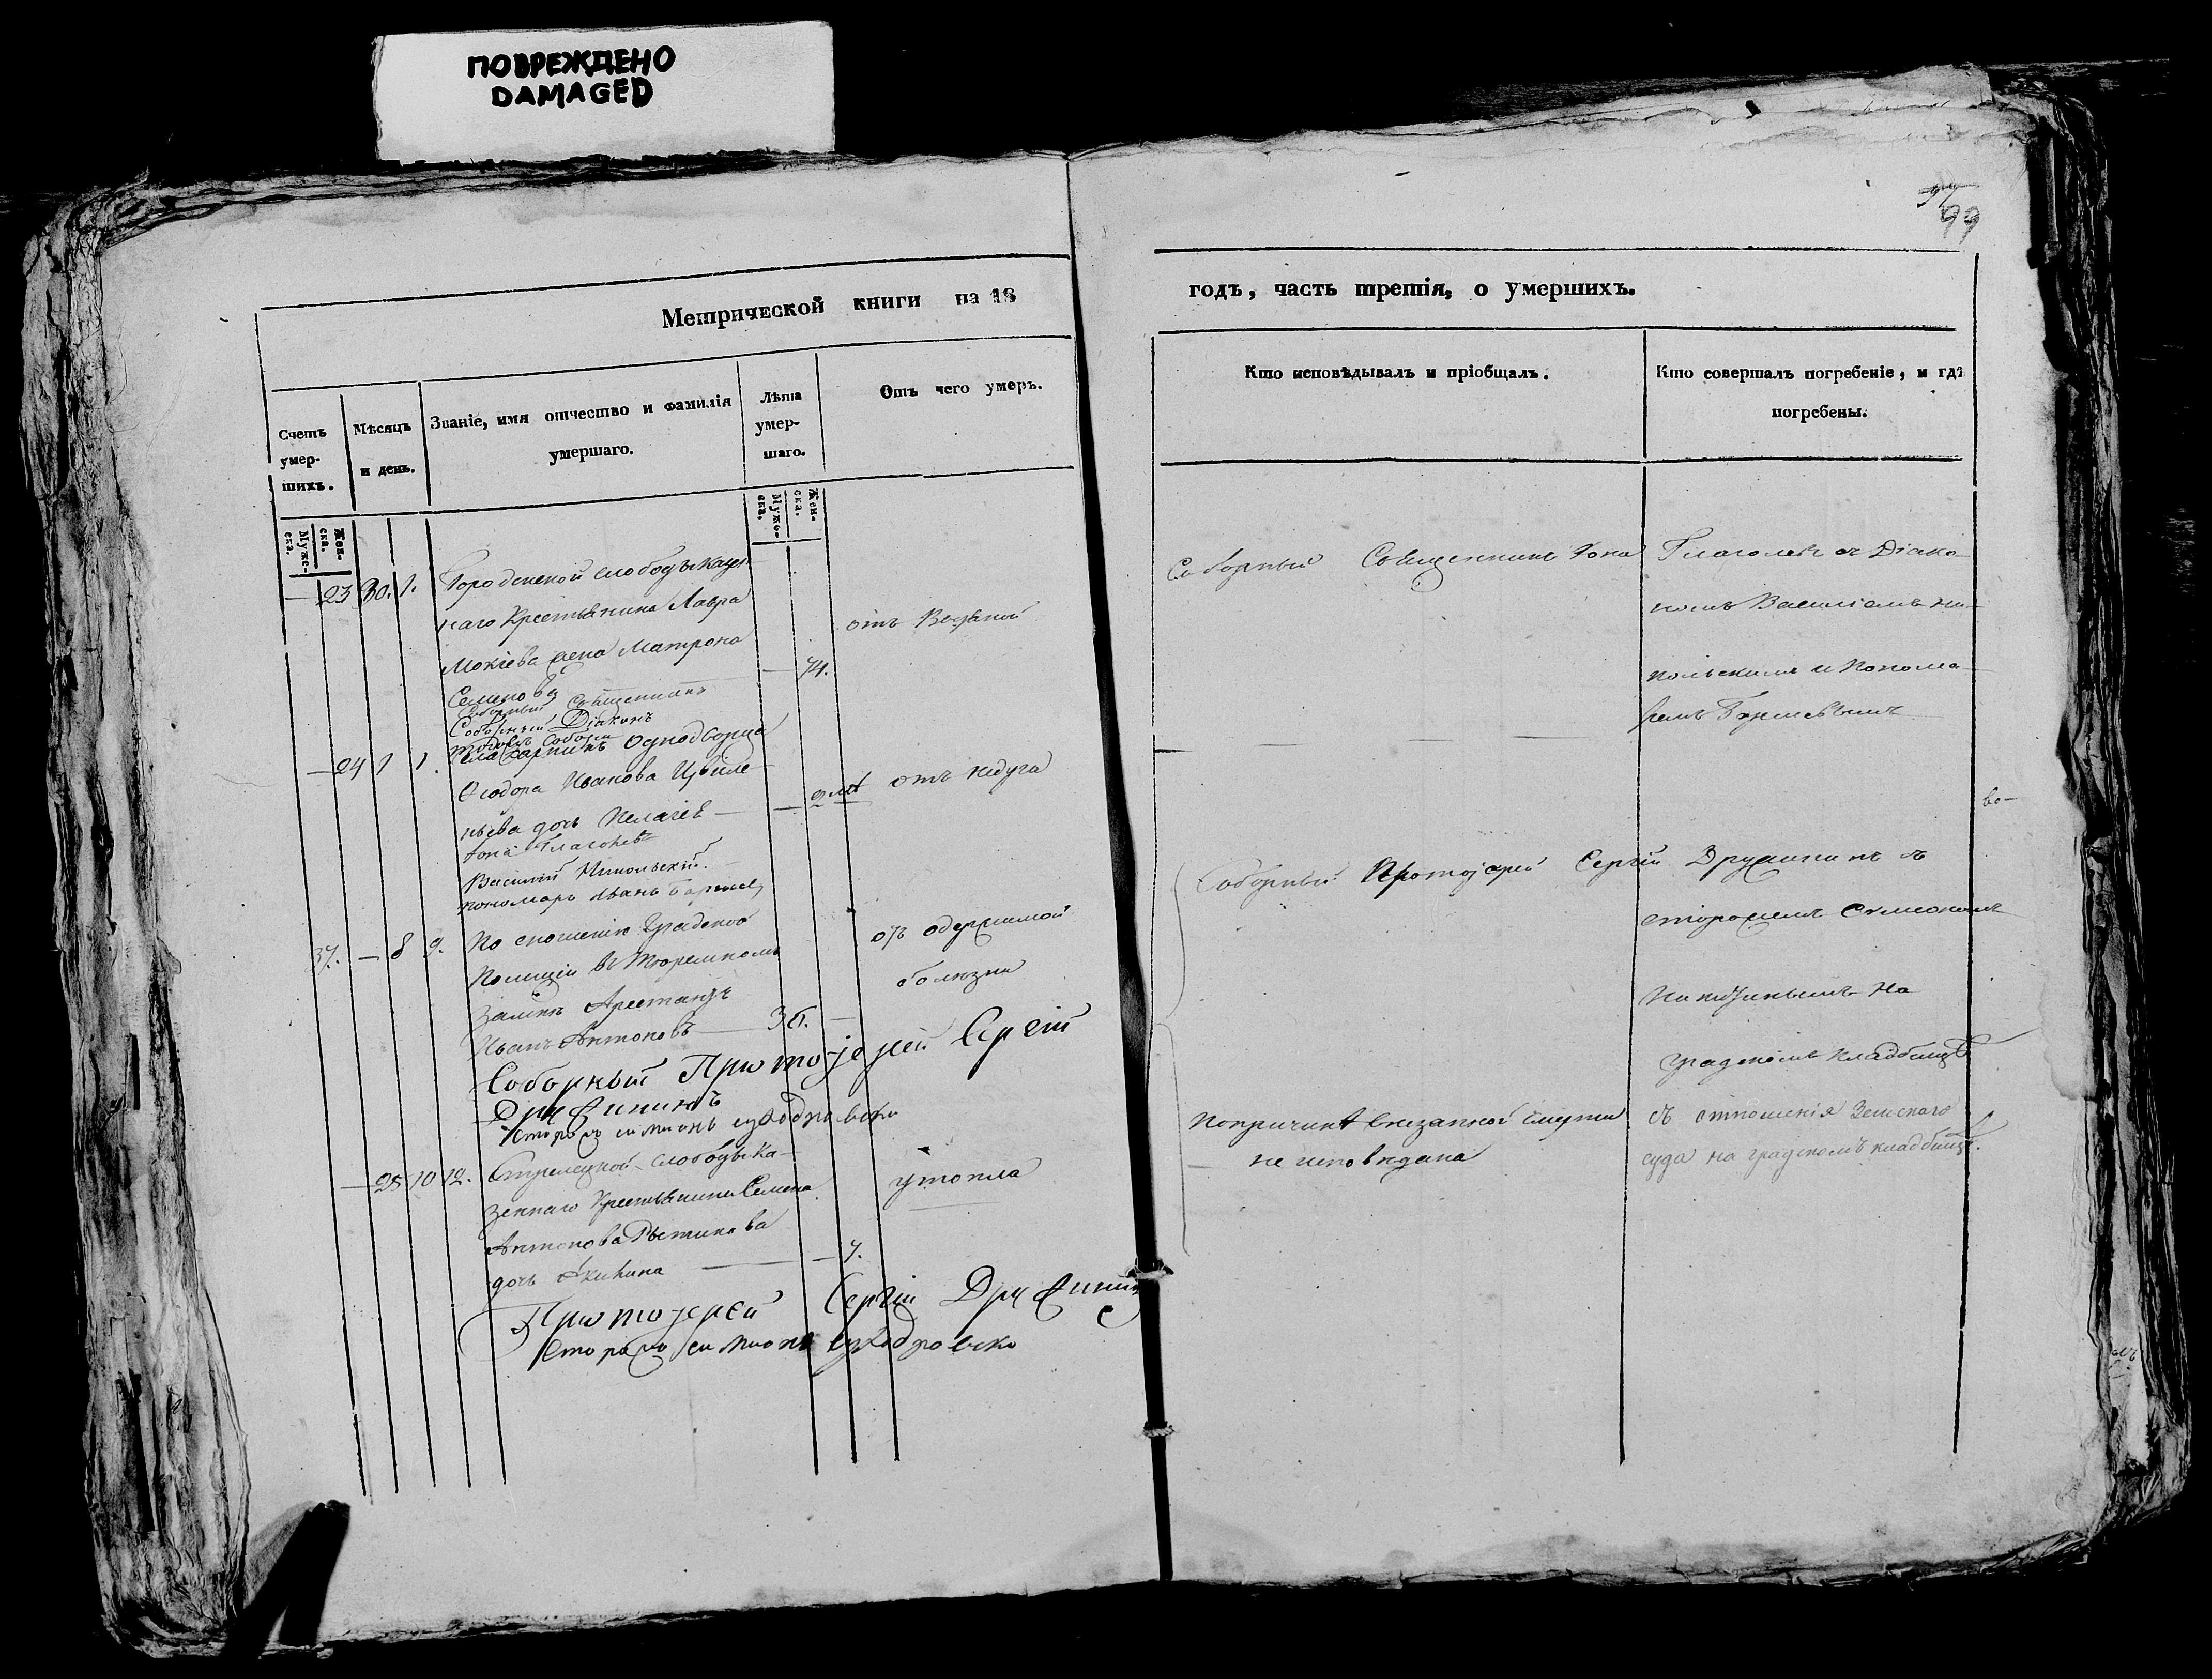 ПОВРЕЖДЕНО
DAMAGED
99
Метрической книги на 18
годъ, часть третія, о умершихъ.
Счетъ умер-
шихъ.
Мѣсяцъ
и день.
Званіе, имя отчество и фамилія
умершаго.
Лѣта
умер-
шаго.
Отъ чего умеръ.
Кто исповѣдывалъ и пріобщалъ.
Кто совершалъ погребеніе, и гдѣ
погребены.
Муже-
ска.
Жен-
ска.
Муже-
ска.
Жен-
ска.
— 23 30. 1. Городенской слободы казен
наго Крестьянина Лавра
Мокіева жена Матрона
Семенова — 74.
отъ Водяной
Соборный Священникъ Іона
Глаголевъ съ Діако-
номъ Василіемъ Ни-
кольскимъ и Понома-
ремъ
Соборный Священникъ
Соборный Діаконъ
— 24 1 1. Села Однодворца
Ѳеодора Иванова
дочь Пелагея — 2 лѣ
отъ недуга
Іона Глаголевъ
Василій Никольскій.
пономарь Иванъ
37. — 8 9. По сношенію Градской
Полиціи въ Тюремномъ
Замкѣ Арестантъ
Иванъ Антоновъ — 36. —
отъ одержимой
болезни
Соборный Протоіерей Сергій Дружининъ съ
сторожемъ Симеономъ
на
градскомъ кладбищѣ
Соборный Протоіерей Сергій
Дружининъ
— 25 10 12. Стрелецкой слободы Ка-
зеннаго Крестьянина Семена
Антонова
дочь Акилина — 7.
утопла
По причинѣ внезапной смерти
— не исповедана
съ отношенія Земскаго
суда на градскомъ кладбищѣ.
Протоіерей Сергій Дружининъ
во-